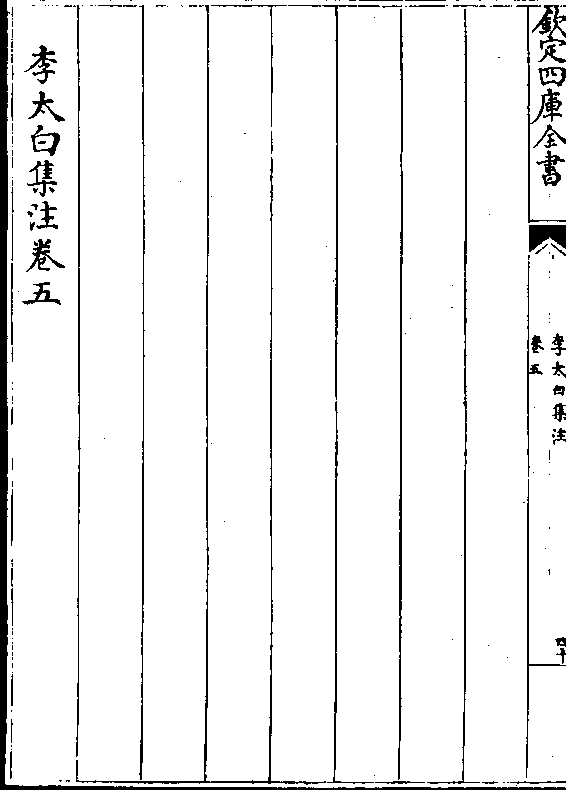 欽定四庫全書
李太白集注
卷五
四十
李太白集注卷五